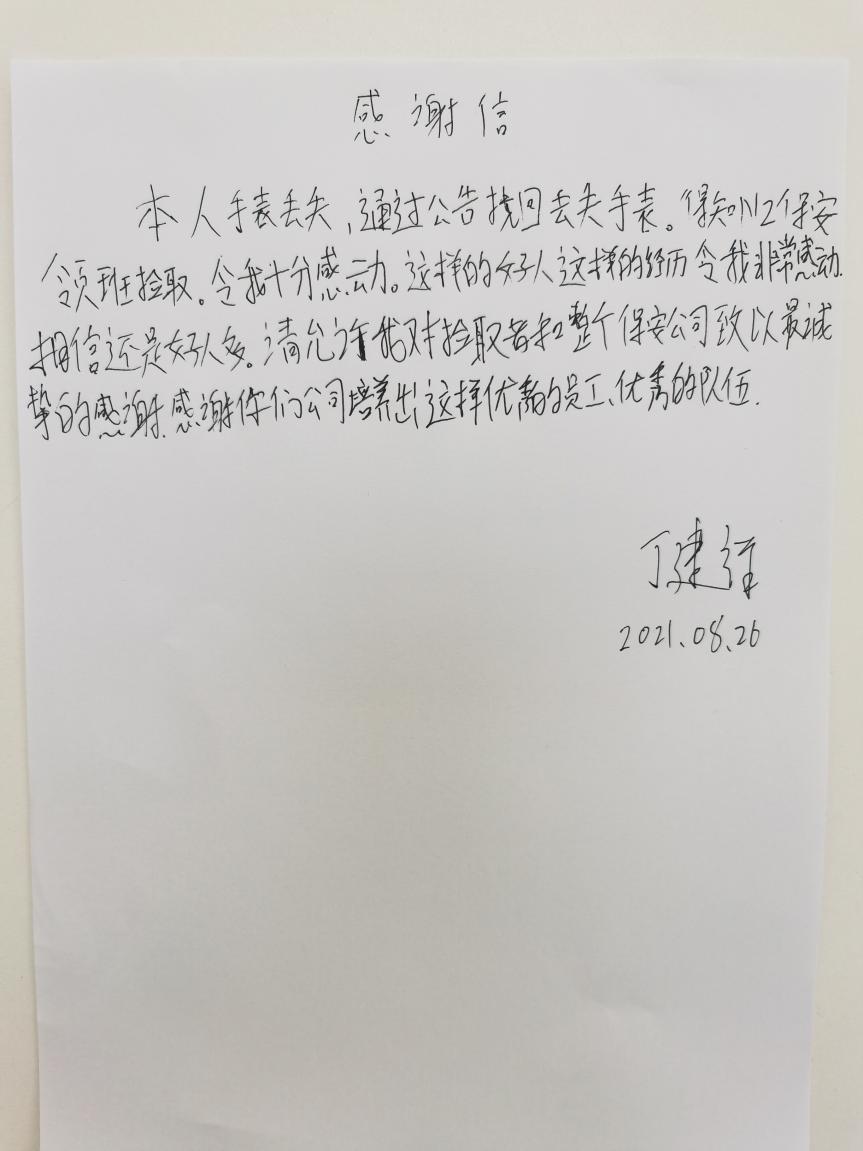 感谢信
本人手表丢失，通过公告找回丢失手表。得知N2保安
领班拾取。令我十分感动。这样的好人这样的经历令我非常感动.
相信还是好人多。请允许我对拾取者和整个保安公司致以最诚
挚的感谢.感谢你们公司培养出这样优秀的员工、优秀的队伍.
丁建
2021.08.26